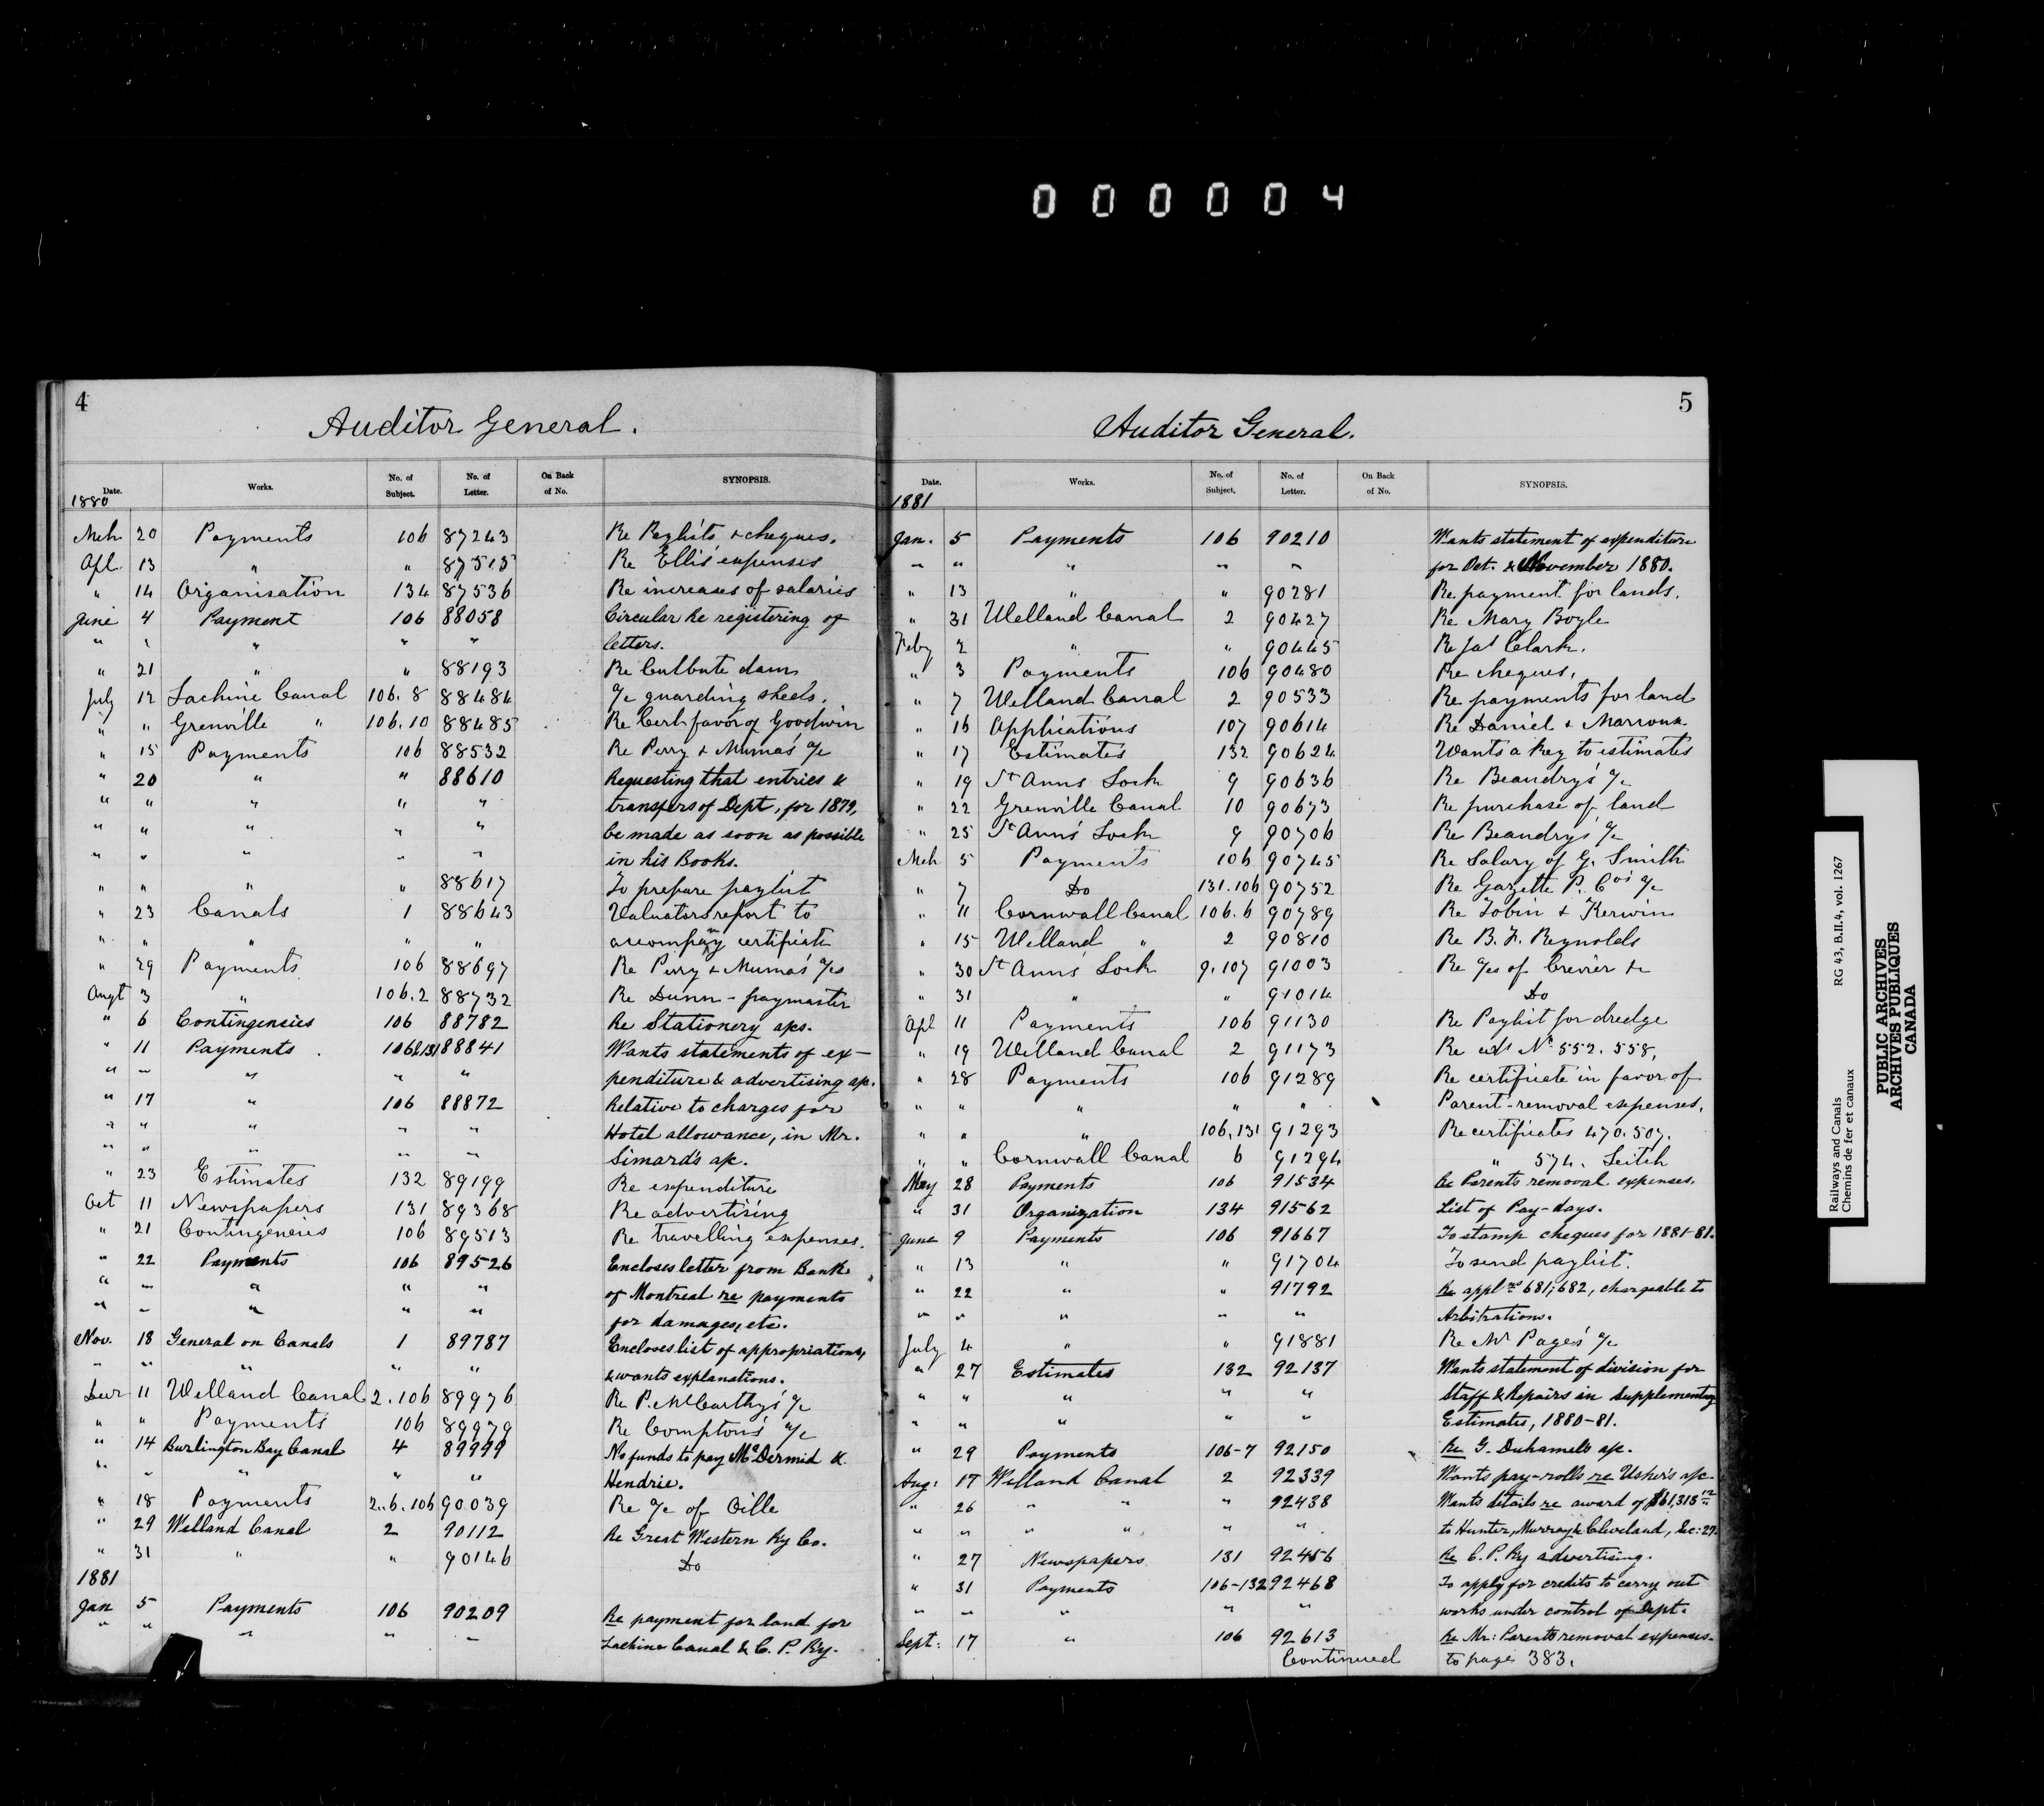 000004
4
Auditor General.
Date. Works. No. of Subject. No. of Letter. On Back of No. SYNOPSIS.
1880
Mch 20 Payments 106 87243 Re Paylists & cheques.
Apl. 13 " " 87515 Re Ellis' expenses
" 14 Organisation 134 87536 Re increases of salaries
June 4 Payment 106 88058 Circular Re registering of
" " " " " letters.
" 21 " " 88193 Re Culbute dam
July 12 Lachine Canal 106.8 88484 a/c guarding sheds.
" " Grenville " 106.10 88485 Re Cert. favor of Goodwin
" 15 Payments 106 88532 Re Perry & Muma's a/c
" 20 " " 88610 Requesting that entries &
" " " " " transfers of Dept, for 1879,
" " " " " be made as soon as possible
" " " " " in his Books.
" " " " 88617 To prepare paylist
" 23 Canals 1 88643 Valuators report to
" " " " " accompany certificate
" 29 Payments 106 88697 Re Perry & Muma's a/cs
Augt 3 " 106.2 88732 Re Dunn - paymaster
" 6 Contingencies 106 88782 Re Stationery a/cs.
" 11 Payments 106&131 88841 Wants statements of ex-
" " " " " penditure & advertising a/c.
" 17 " 106 88872 Relative to charges for
" " " " " Hotel allowance, in Mr.
" " " " " Simard's a/c.
" 23 Estimates 132 89199 Re expenditure
Oct 11 Newspapers 131 89368 Re advertising
" 21 Contingencies 106 89513 Re travelling expenses.
" 22 Payments 106 89526 Encloses letter from Bank
" " " " " of Montreal re payments
" " " " " for damages, etc.
Nov. 18 General on Canals 1 89787 Encloses list of appropriations,
" " " " " & wants explanations.
Decr 11 Welland Canal 2.106 89976 Re P. McCarthy's a/c
" " Payments 106 89979 Re Compton's a/c
" 14 Burlington Bay Canal 4 89999 No funds to pay McDermid &
" " " " " Hendrie.
" 18 Payments 2.6.106 90039 Re a/c of Cille
" 29 Welland Canal 2 90112 Re Great Western Ry Co.
" 31 " " 90146 Do
1881
Jan 5 Payments 106 90209 Re payment for land for
" " " " " Lachine Canal & C. P. Ry.
5
Auditor General.
Date. Works. No. of Subject. No. of Letter. On Back of No. SYNOPSIS.
1881
Jan. 5 Payments 106 90210 Wants statement of expenditure
" " " " " for Oct. & November 1880.
" 13 " " 90281 Re payment for lands.
" 31 Welland Canal 2 90427 Re Mary Boyle
Feby 2 " " 90445 Re Jas Clark.
" 3 Payments 106 90480 Re cheques.
" 7 Welland Canal 2 90533 Re payments for land
" 16 Applications 107 90614 Re Daniel &
" 17 Estimates 132 90624 Wants a key to estimates
" 19 St Anns Lock 9 90636 Re Beaudry's a/c
" 22 Grenville Canal 10 90673 Re purchase of land
" 25 St Ann's Lock 9 90706 Re Beaudry's a/c
Mch 5 Payments 106 90745 Re Salary of G. Smith
" 7 Do 131.106 90752 Re Gazette P. Co's a/c
" 11 Cornwall Canal 106.6 90789 Re Tobin & Kerwin
" 15 Welland " 2 90810 Re B. F. Reynolds
" 30 St Anns' Lock 9.107 91003 Re a/cs of Crevier &c
" 31 " " 91014 Do
Apl 11 Payments 106 91130 Re Paylist for dredge
" 19 Welland Canal 2 91173 Re certs No. 552. 558.
" 28 Payments 106 91289 Re certificate in favor of
" " " " " Parent - removal expenses.
" " " 106,131 91293 Re certificates 470.507.
" " Cornwall Canal 6 91294 " 574. Leitch
May 28 Payments 106 91534 Re Parents removal expenses.
" 31 Organization 134 91562 List of Pay-days.
June 9 Payments 106 91667 To stamp cheques for 1881-81.
" 13 " " 91704 To send paylist.
" 22 " " 91792 Re appl ns 681, 682, chargeable to
" " " " " Arbitrations.
July 4 " " 91881 Re Mr Page's a/c
" 27 Estimates 132 92137 Wants statement of division for
" " " " " Staff & Repairs in Supplementary
" " " " " Estimates, 1880-81.
" 29 Payments 106-7 92150 Re G. Duhamels a/c.
Aug: 17 Welland Canal 2 92339 Wants pay-rolls re Usher's a/c
" 26 " " " 92438 Wants details re award of $61,313 12
" " " " " " to Hunter, Murray & Cleveland, Sec: 27.
" 27 Newspapers 131 92456 Re C. P. Ry advertising.
" 31 Payments 106-132 92468 To apply for credits to carry out
" " " " " works under control of Dept.
Sept: 17 " 106 92613 Re Mr: Parents removal expenses.
Continued to page 383.
Railways and Canals RG 43, B.II.4, vol. 1267
Chemins de fer et canaux
PUBLIC ARCHIVES
ARCHIVES PUBLIQUES
CANADA